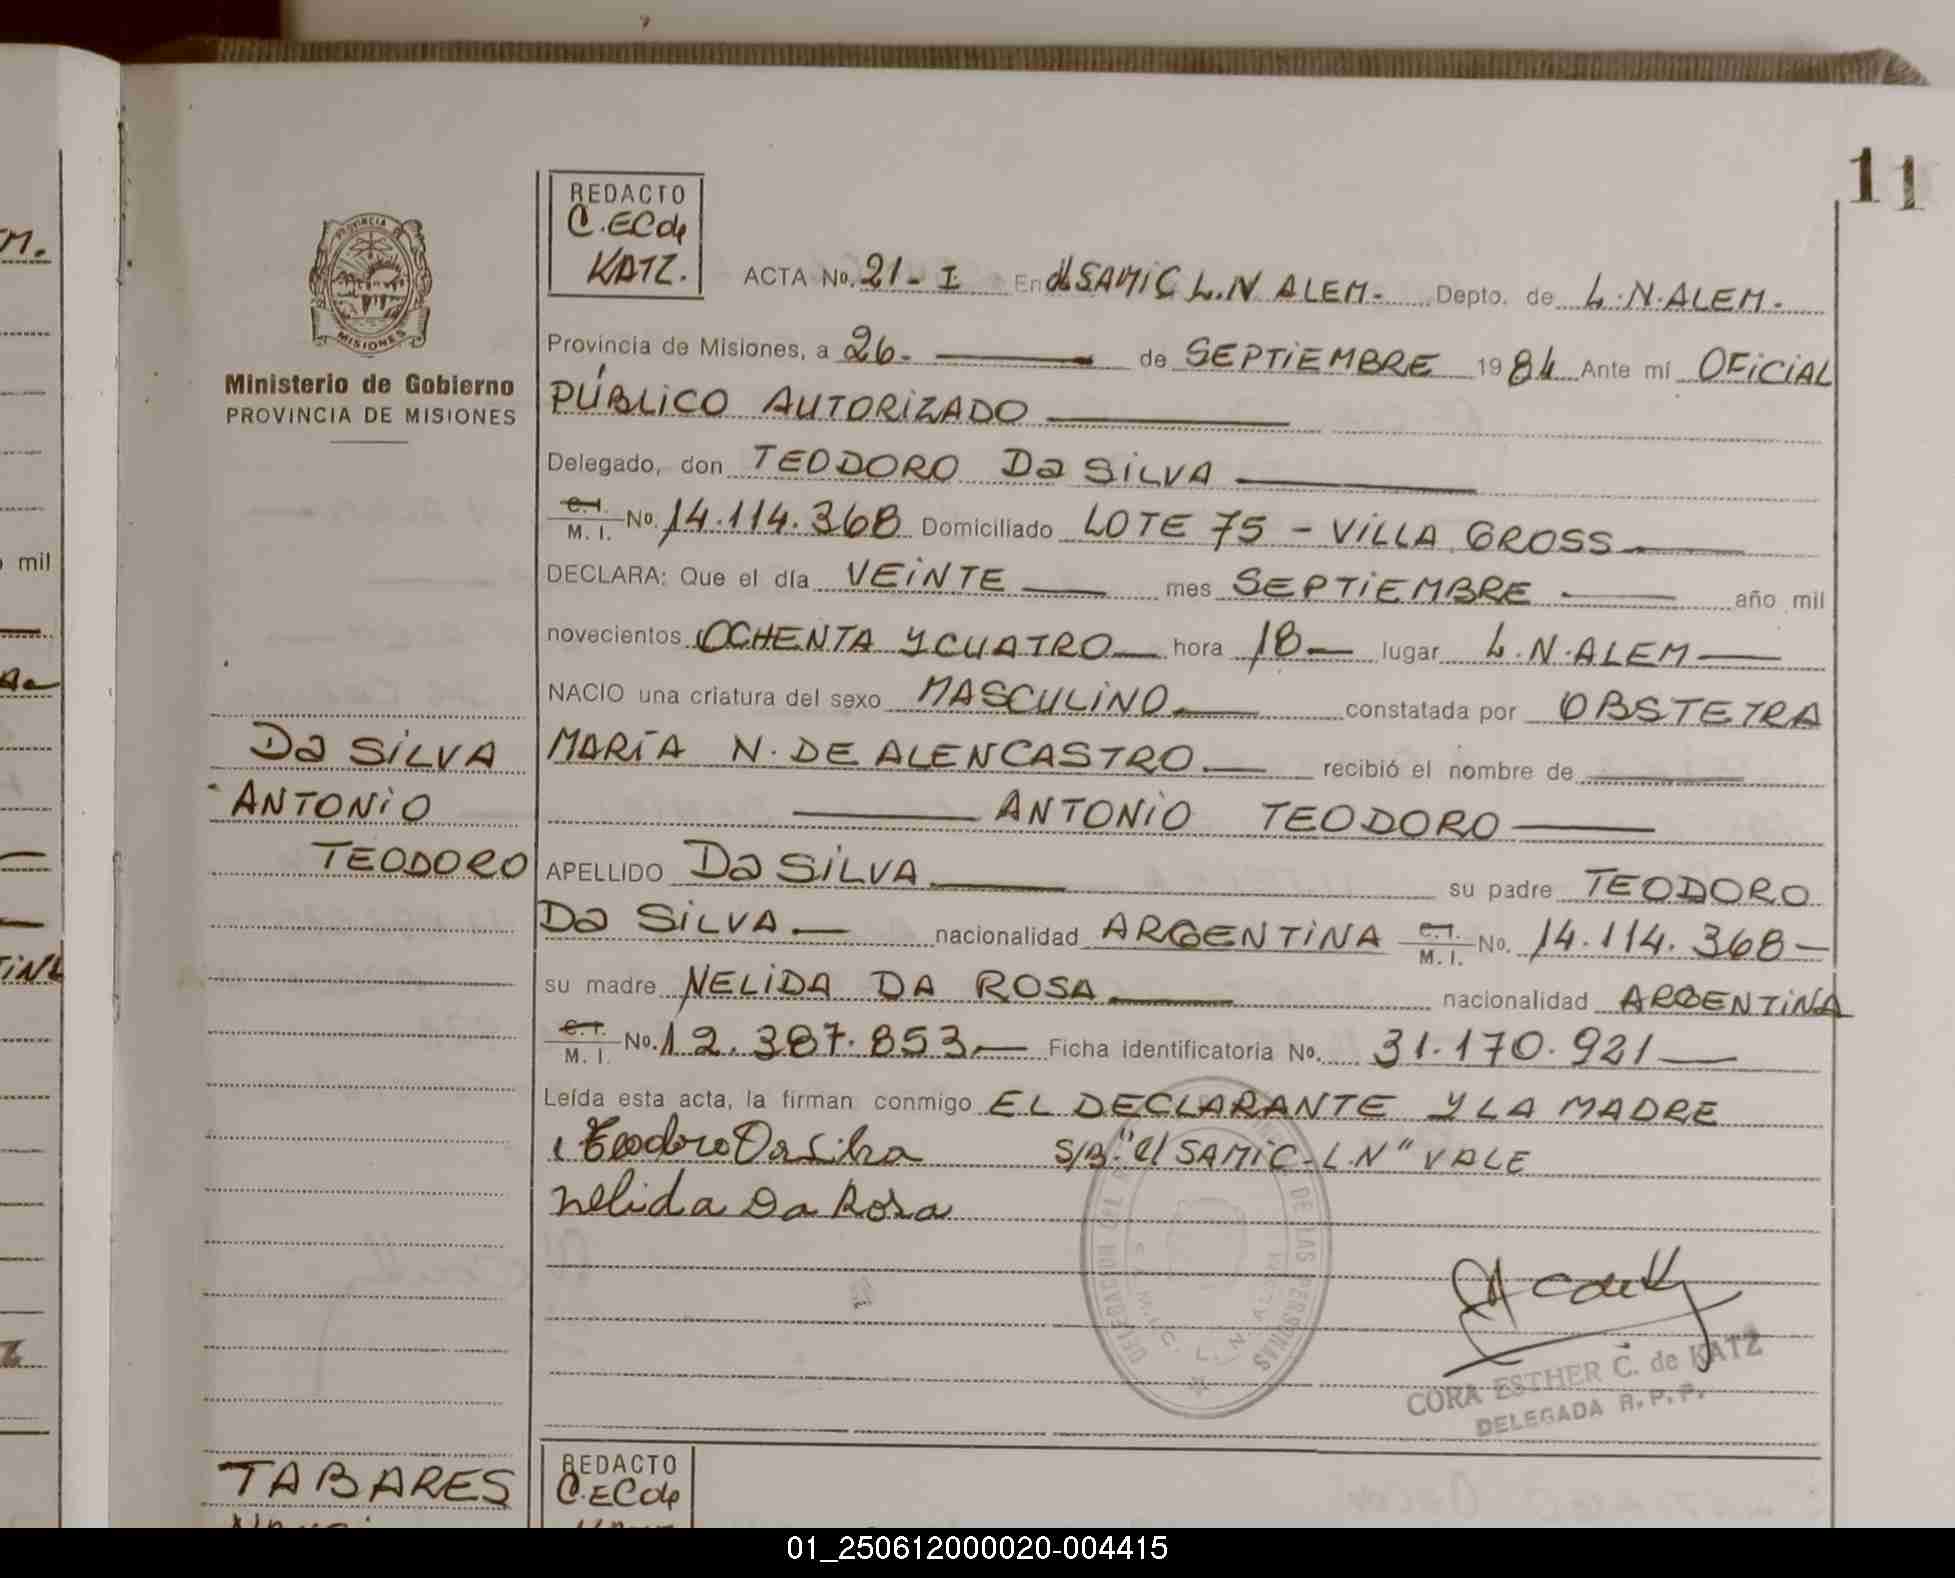 11
REDACTO
C.ECde
KATZ.
PROVINCIA DE
MISIONES
Ministerio de Gobierno
PROVINCIA DE MISIONES
ACTA No. 21 - I En el SAMiC L.N ALEM. Depto. de L.N.ALEM.
Provincia de Misiones, a 26. de SEPTiEMBRE 1984 Ante mí OFiCiAL
PÚBLiCO AUTORiZADO
Delegado, don TEODORO Da SiLVA
C.I. M. I. No. 14.114.368 Domiciliado LOTE 75 - ViLLA GROSS
DECLARA: Que el día VEiNTE mes SEPTiEMBRE año mil
novecientos OCHENTA Y CUATRO hora 18 lugar L.N.ALEM
NACIO una criatura del sexo MASCULiNO constatada por OBSTETRA
MARÍA N. DE ALENCASTRO recibió el nombre de
ANTONiO TEODORO
APELLIDO Da SiLVA su padre TEODORO
Da SiLVA nacionalidad ARGENTiNA C.I. M. I. No. 14.114.368
su madre NELiDA DA ROSA nacionalidad ARGENTiNA
C.I. M. I. No. 12.387.853 Ficha identificatoria No. 31.170.921
Leída esta acta, la firman conmigo EL DECLARANTE Y LA MADRE
Teodoro Da Silva S/B: "el SAMiC-L.N" VALE
Nelida Da Rosa
Da SiLVA
ANTONiO
TEODORO
DELEGACION DEL DE LAS PERSONAS
S.A.M.I.C. L. N. ALEM
CORA ESTHER C. de KATZ
DELEGADA R.P.P.
M.
mil
TABARES
REDACTO
C.ECde
01_250612000020-004415